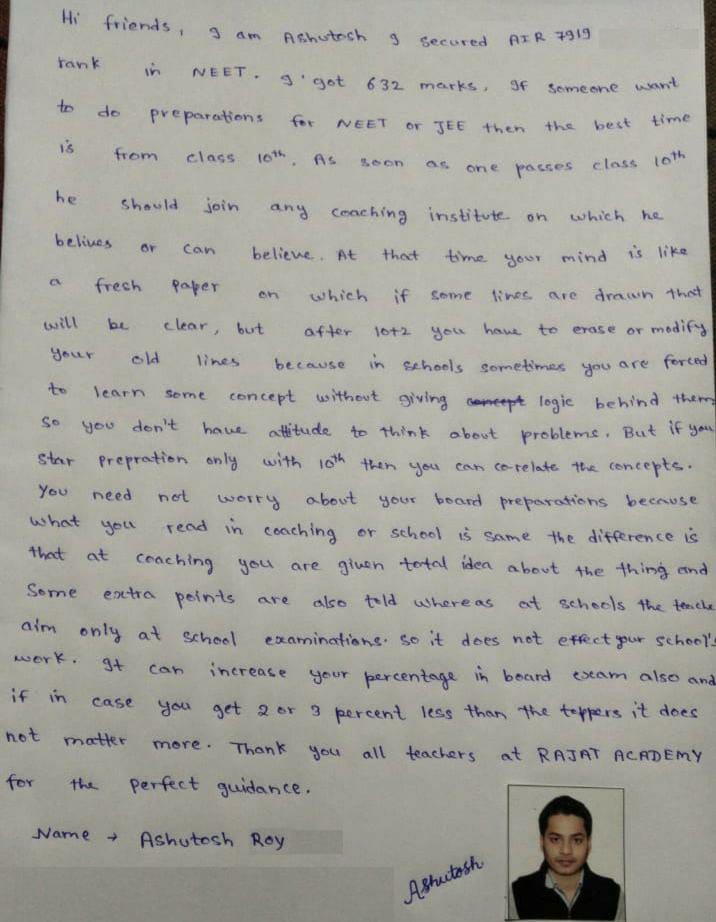 Hi friends, I am Ashutosh I secured AIR 7919
rank in NEET. I got 632 marks. If someone want
to do preparations for NEET or JEE then the best time
is from class 10th. As soon as one passes class 10th
he should join any coaching institute on which he
belives or can believe. At that time your mind is like
a fresh paper on which if some lines are drawn that
will be clear, but after 10+2 you have to erase or modify
your old lines because in schools sometimes you are forced
to learn some concept without giving concept logic behind them
so you don't have attitude to think about problems. But if you
star prepration only with 10th then you can co-relate the concepts.
You need not worry about your board preparations because
what you read in coaching or school is same the difference is
that at coaching you are given total idea about the thing and
Some extra points are also told whereas at schools the teache
aim only at school examinations. so it does not effect your school's
work. It can increase your percentage in board exam also and
if in case you get 2 or 3 percent less than the toppers it does
not matter more. Thank you all teachers at RAJAT ACADEMY
for the perfect guidance.
Name → Ashutosh Roy
Ashutosh